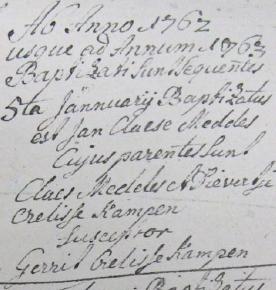 Ab Anno 1762
usque ad Annum 1763
Baptizati sunt sequentes
5ta Jannuarij Baptizatus
est Jan Claese Meddes
Cujus parentes sunt
Claes Meddes et Sievertje
Crelisse Kampen
susceptor
Gerrit Crelisse Kampen